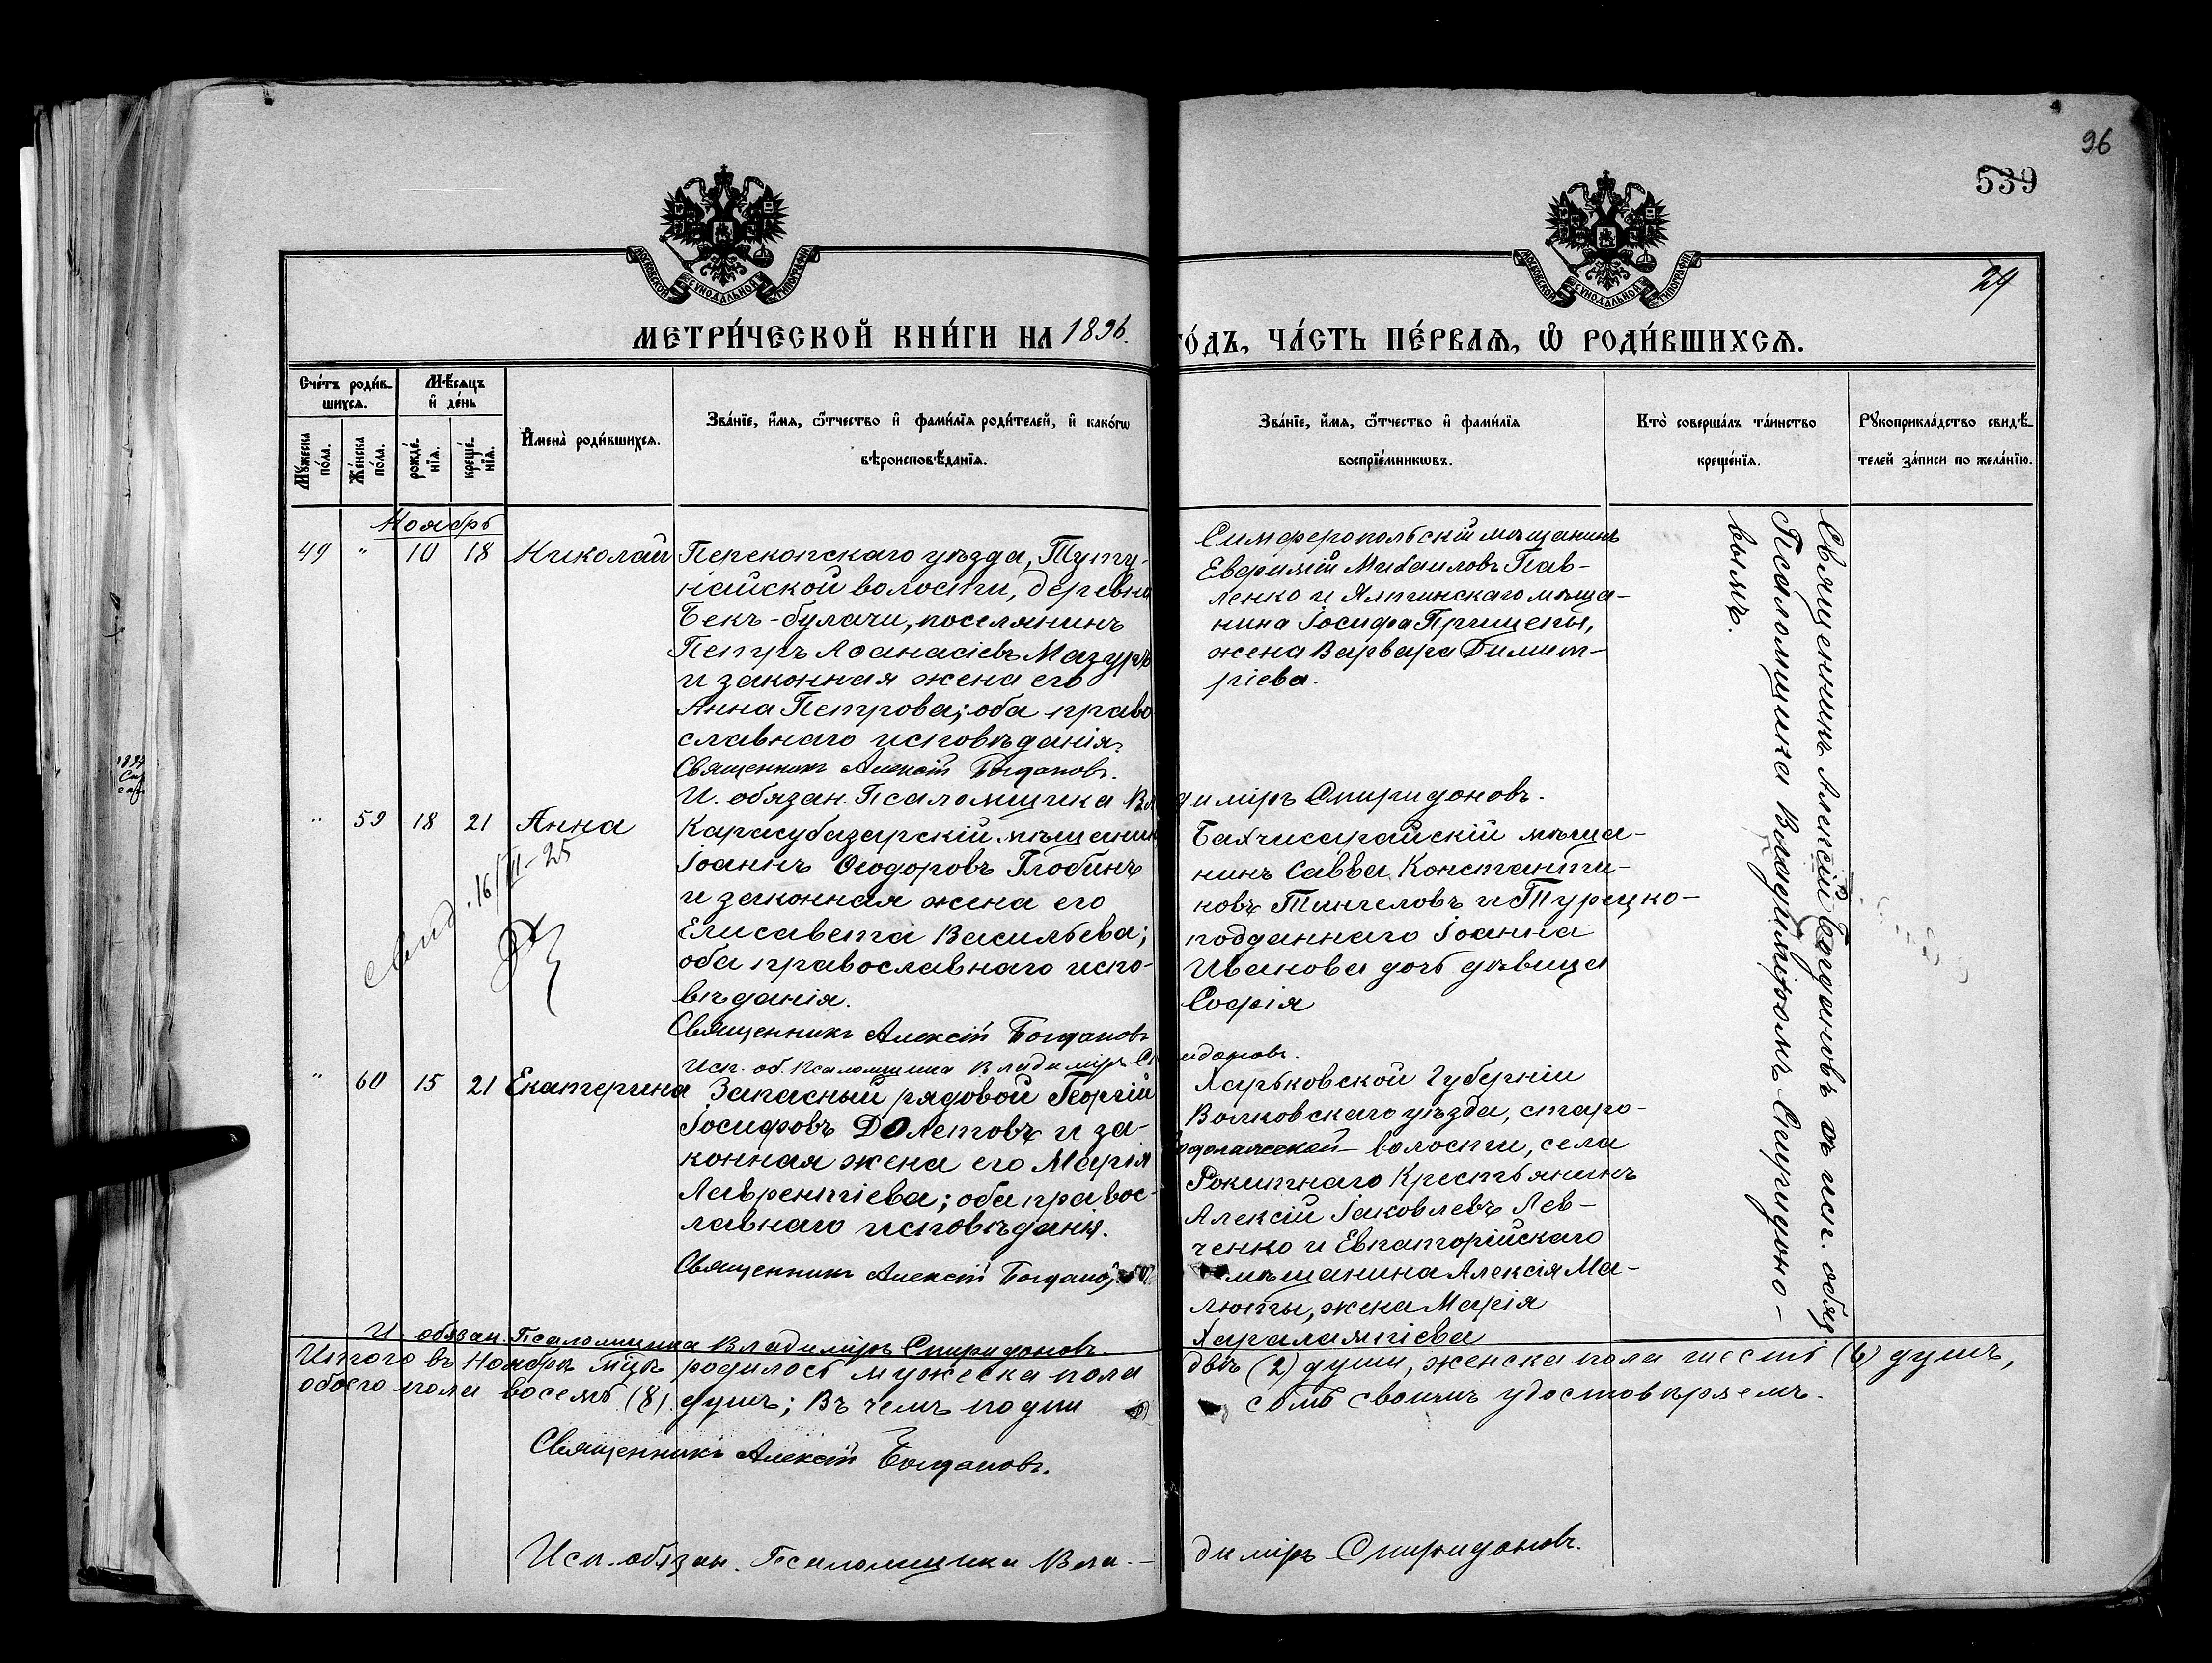 96
539
24
МОСКОВСКОЙ СѴНОДАЛЬНОЙ ТИПОГРАФІИ
МОСКОВСКОЙ СѴНОДАЛЬНОЙ ТИПОГРАФІИ
МЕТРИ́ЧЕСКОЙ КНИ́ГИ НА 1896.
ГО́ДЪ, ЧА́СТЬ ПЕ́РВАѦ, Ѽ РОДИ́ВШИХСѦ.
Сче́тъ роди́в-
шихсѧ.
Мꙋ́жеска по́ла.
Же́нска по́ла.
Мѣ́сѧцъ
и҆ де́нь
рожде́-
нїѧ.
креще́-
нїѧ.
И҆мена̀ роди́вшихсѧ.
Зва́нїе, и҆́мѧ, ѻ҆́тчество и҆ фами́лїѧ роди́телей, и҆ како́гѡ
вѣроисповѣ́данїѧ.
Зва́нїе, и҆́мѧ, ѻ҆́тчество и҆ фами́лїѧ
воспрїе́мникѡвъ.
Кто̀ соверша́лъ та́инство
креще́нїѧ.
Рꙋкоприкла́дство свидѣ́-
телей за́писи по жела́нїю.
Ноябрь
49 " 10 18 Николай
Перекопскаго уѣзда, Туту-
найской волости, деревни
Бекъ-булачи, поселянинъ
Петръ Аѳанасіевъ Мазуръ
и законная жена его
Анна Петрова; оба право
славнаго исповѣданія.
Священникъ Алексій Богдановъ.
И. обязан. Псаломщика Владиміръ Спиридоновъ.
Симферопольскій мѣщанинъ
Евфимій Михаиловъ Пав-
ленко и Ялтинскаго мѣща-
нина Іосифа Прищепы,
жена Варвара Димит-
ріева.
" 59 18 21 Анна
Карасубазарскій мѣщанинъ
Іоаннъ Ѳеодоровъ Глобинъ
и законная жена его
Елисавета Васильева;
оба православнаго испо-
вѣданія.
Священникъ Алексій Богдановъ
Исп. об. Псаломщика Владиміръ Сп идоновъ.
Бахчисарайскій мѣща-
нинъ Савва Константи-
новъ Тингеловъ и Турецко-
подданнаго Іоанна
Иванова дочь дѣвица
Софія
16/II-25
" 60 15 21 Екатерина
Запасный рядовой Георгій
Іосифовъ Долетовъ и за-
конная жена его Марія
Лаврентіева; оба правос-
лавнаго исповѣданія.
Священникъ Алексій Богдановъ
И. обязан. Псаломщика Владиміръ Спиридоновъ.
Харьковской Губерніи
Волковскаго уѣзда, старо-
водолажской волости, села
Рокитнаго Крестьянинъ
Алексій Іаковлевъ Лев-
ченко и Евпаторійскаго
мѣщанина Алексія Ма-
люты, жена Марія
Харалампіева
Священникъ Алексій Богдановъ съ исп. обяз.
Псаломщика Владиміромъ Спиридоно-
вымъ.
Итого въ Ноябрѣ м-цѣ родилось мужеска пола двѣ (2) души, женска пола шесть (6) душъ,
обоего пола восемь (8) душъ; Въ чемъ подпи сомъ своимъ удостовѣряемъ.
Священникъ Алексій Богдановъ.
Исп. обязан. Псаломщика Вла- диміръ Спиридоновъ.